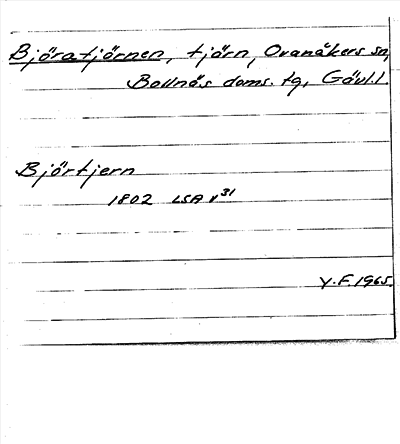 Björatjörnen, tjärn, Ovanåkers sn,
Bollnäs doms. tg, Gävl.l.
Björtjern
1802 LSA v31
Y.F. 1965.